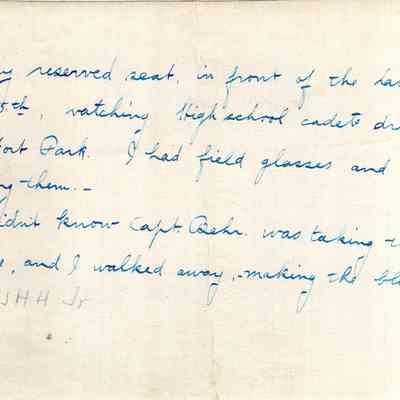 y reserved seat, in front of the ha
5th, watching High school cadets dr
ort Park. I had field glasses and
ng them.-
idn't know Capt. Behr. was taking t
e, and I walked away, making the bl
JHH Jr